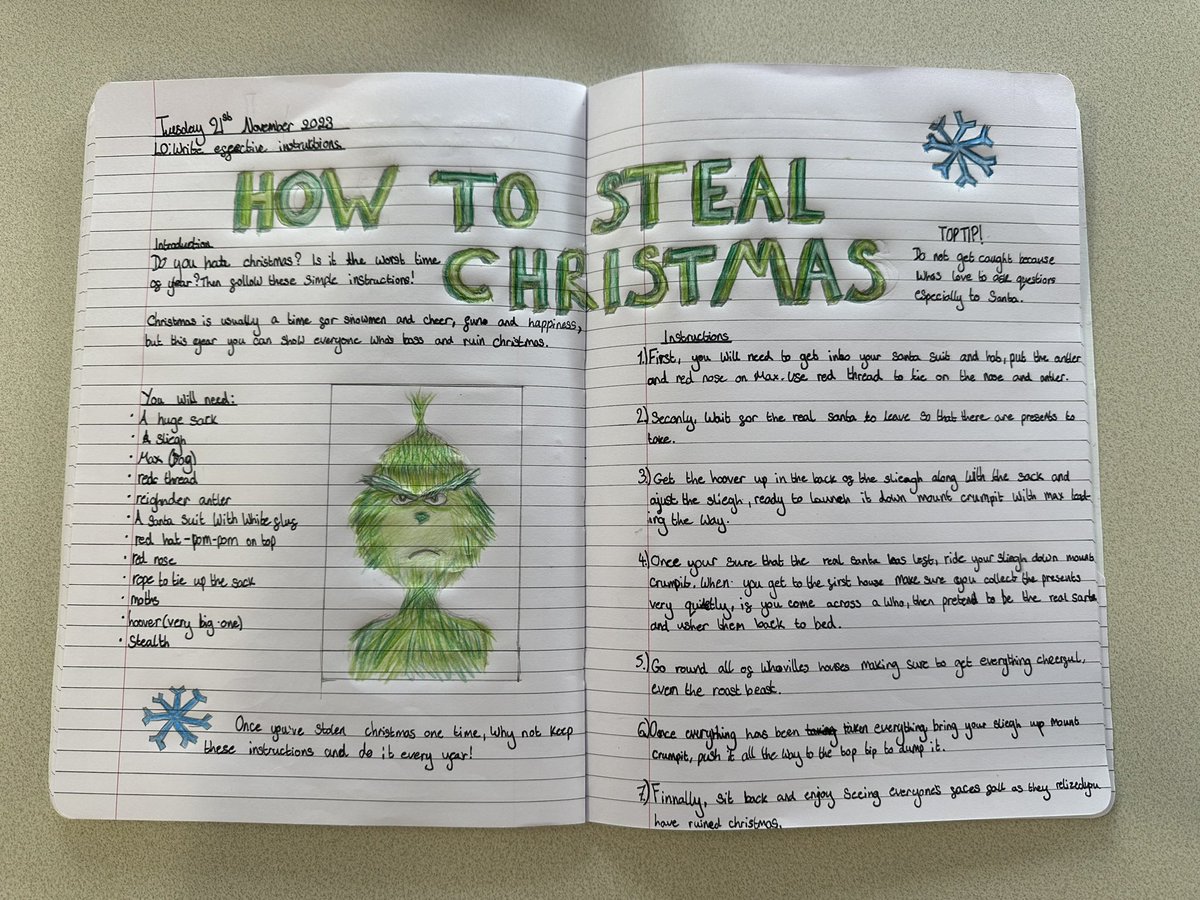 Tuesday 21st November 2023
LO: Write effective instructions
HOW TO STEAL
CHRISTMAS
Introduction
Do you hate christmas? Is it the worst time
of year? Then follow these simple instructions!
Christmas is usually a time for snowmen and cheer, fun and happiness,
but this year you can show everyone who's boss and ruin christmas.
You will need:
· A huge sack
· A sliegh
· Max (Dog)
· red thread
· reighnder antler
· A santa suit with white fluf
· red hat - pom-pom on top
· red nose
· rope to tie up the sack
· moths
· hoover (very big one)
· Stealth
Once you've stolen christmas one time, why not keep
these instructions and do it every year!
TOP TIP!
Do not get caught because
who's love to ask questions
especially to Santa.
Instructions
1.) First, you will need to get into your santa suit and hat, put the antler
and red nose on Max. Use red thread to tie on the nose and antler.
2.) Seconly, wait for the real santa to leave so that there are presents to
take.
3.) Get the hoover up in the back of the slieagh along with the sack and
ajust the sliegh, ready to launch it down mount crumpit with max lead-
ing the way.
4.) Once your sure that the real santa has left, ride your sliegh down mount
crumpit. When you get to the first house make sure you collect the presents
very quietly, if you come across a who, then pretend to be the real santa
and usher them back to bed.
5.) Go round all of whovilles houses making sure to get everything cheerful,
even the roast beast.
6.) Once everything has been taken everything, bring your sliegh up mount
crumpit, push it all the way to the top tip to dump it.
7.) Finnally, sit back and enjoy seeing everyone's faces fall as they relized you
have ruined christmas.